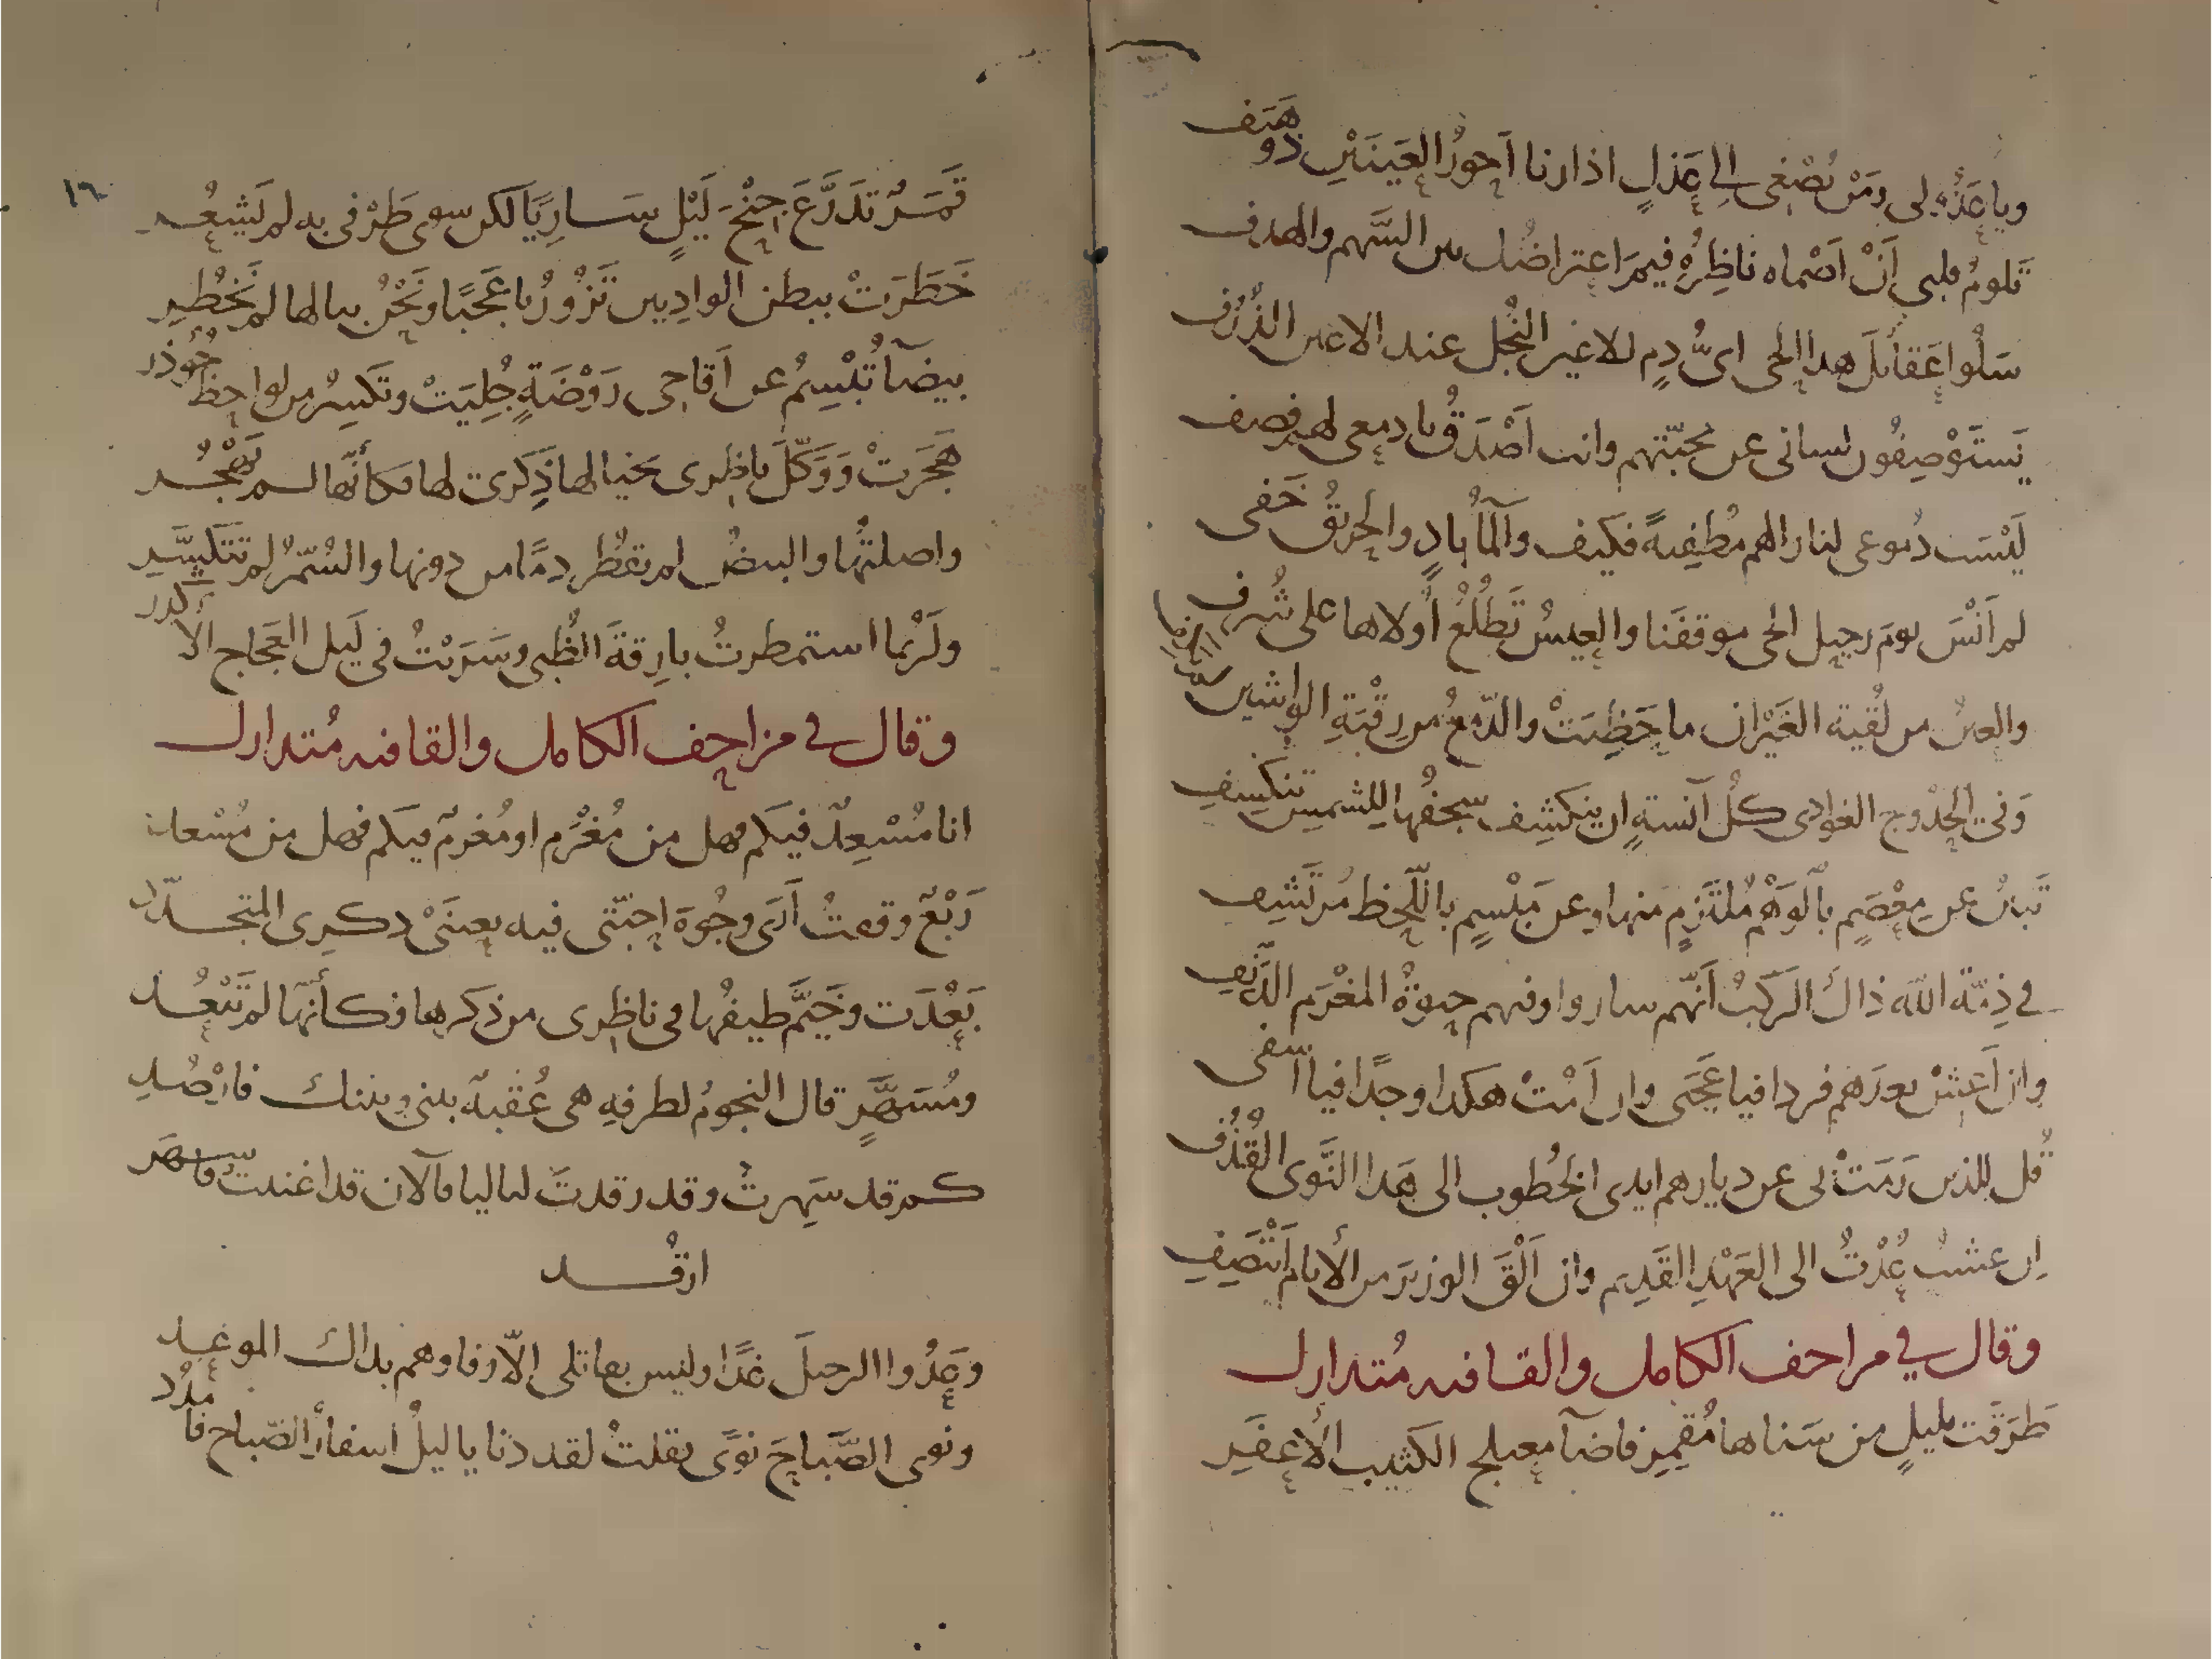 ويا عَذُولى ومَنْ يُصْغى إلى عَذَلٍ اذا رنا اَحوَرُ العَينَيْنِ ذو هَيَف
تَلومُ قلبى اَنْ اَصْماه ناظِرُهُ فيمَ اعتراضُك بين السَّهم والهدف
سَلُوا عَقائلَ هذا الحى اىُّ دمٍ للاعين النُّجل عند الاعين الذُّرُف
يَستَوْصِفُون لسانى عن محبّتهم وانت اَصْدَقُ يا دمعى لهم فصف
لَيْسَت دُموعى لنار الهم مُطْفِيةً فكيف والمآ بادٍ والحريقُ خَفى
لم اَنْسَ يومَ رحيل الحى موقفَنا والعِيسُ تَطْلُعُ اُولاها على شُرف
والعينُ من لُقية الغَيْران ما حَظِيَتْ والدّمعُ من رِقْبَةِ الواشين
وَفى الحُدُوج الغوادى كُلُ آنسةٍ ان ينكشِف سَجفُها للشمس تنكسِفِ
تَبينُ عن مِعْصَمٍ بالوَهْم مُلتَزَمٍ منها وعن مَبْسِمٍ باللّحظ مُرتَشَفِ
فى ذِمّة الله ذاكَ الرَكبُ اَنّهم ساروا وفيهم حيوةُ المغْرَم الدَّنِفِ
وان اَعِشْ بعدَهم فردا فيا عَجَبى وان اَمُتْ هكذا وجدًا فيا اسفى
قُل للذين رَمَتْ بى عن ديارهم ايدى الخُطوب الى هَذا النَّوى القُذُف
اِن عشتُ عُدْتُ الى العَهْدِ القَدِيم وان اَلْقَ الوزيرَ من الأيام اَنتَصِفِ
وقال في مزاحف الكامل والقافيه مُتدارك
طَرَقَت بليلٍ من سَناها مُقمِرِ فاضآ معتلج الكثيب الأعفَرِ
١٦
قَمَرٌ تدَرَّعَ جِنْحَ لَيْلٍ سَارِيًا لكن سوى طَرْفى به لم يَشعُر
خَطَرَتْ ببطن الوادِيين تَزُورُنا عَجَبًا ونَحْنُ ببالها لم نَخْطُرِ
بيضآ تُبْسِمُ عن اَقاحى رَوْضَةٍ جُلِيَتْ وتَكسِرُ من لواحِظ جُوذر
هَجَرَتْ وَوَكَّلَ ناظِرى بخيالها ذِكرى لها فكأنّها لم تَهْجُر
واصلتُها والبيضُ لم تقطُر دمًا من دونها والسُّمْرُ لم تتَكسَّرِ
ولَرُبما استمطرتُ بارِقةَ الظُبى وسَرَيْتُ فى لَيل العَجاج الاكدر
وقال في مزاحف الكامل والقافيه مُتدارك
انا مُسْعِدٌ فيكم فهل من مُغْرَم او مُغرمٌ فيكم فهل من مُسْعد
رَبْعٌ وقفتُ اَرَى وجُوهَ احِبّتى فيه بعينَىْ ذكرِى المتجدّد
بَعُدَت وخَيَّم طيفُها فى ناظِرى من ذكرها فكأنّها لم تَبْعُد
ومُسَهَّرٍ قال النجومُ لطرفِهِ هى عُقْبةٌ بينى وبينك فارْصُدِ
كم قد سَهِرتُ وقد رقدتَ لياليا فالآن قد اغنيتَ فاسهَر
ارقُد
وعَدُوا الرحيلَ غدًا وليس بقاتلى الّا وفاوهم بذاك الموعِد
ونوى الصَّباحَ نوًى فقلتُ لقد دنا يا ليلُ اسفارُ الصّباح فامدُد